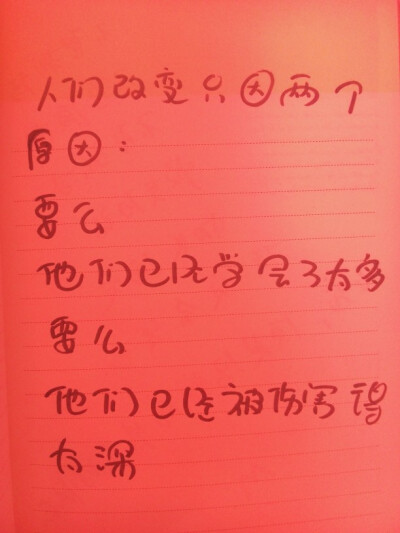 人们改变只因两个
原因：
要么
他们已经学会了太多
要么
他们已经被伤害得
太深